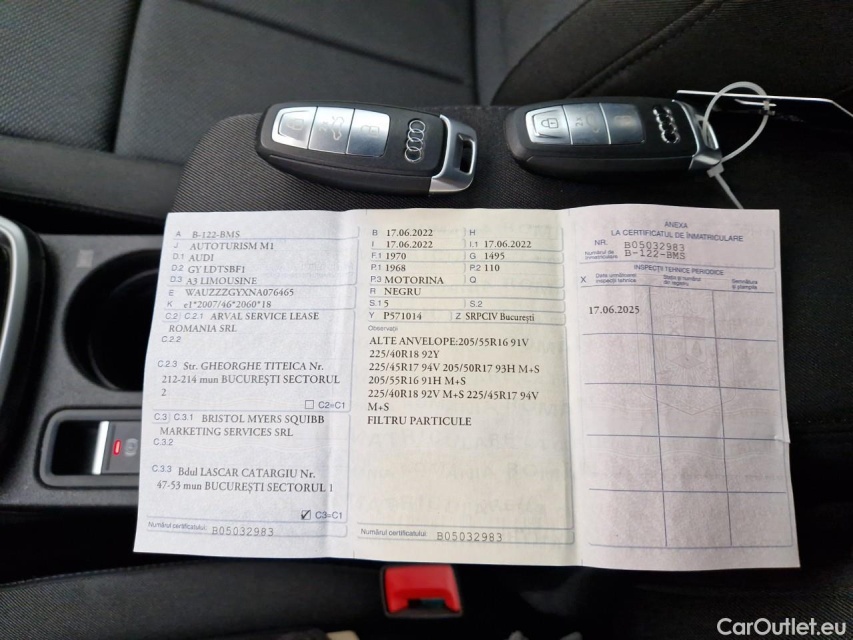 A B-122-BMS
J AUTOTURISM M1
D.1 AUDI
D.2 GY LDTSBF1
D.3 A3 LIMOUSINE
E WAUZZZGYXNA076465
K e1*2007/46*2060*18
C.2 C.2.1 ARVAL SERVICE LEASE
ROMANIA SRL
C.2.2
C.2.3 Str. GHEORGHE TITEICA Nr.
212-214 mun BUCUREȘTI SECTORUL
2
C2=C1
C.3 C.3.1 BRISTOL MYERS SQUIBB
MARKETING SERVICES SRL
C.3.2
C.3.3 Bdul LASCAR CATARGIU Nr.
47-53 mun BUCUREȘTI SECTORUL 1
C3=C1
Numărul certificatului B05032983
B 17.06.2022 H
I 17.06.2022 I.1 17.06.2022
F.1 1970 G 1495
P.1 1968 P.2 110
P.3 MOTORINA Q
R NEGRU
S.1 5 S.2
Y P571014 Z SRPCIV București
Observații
ALTE ANVELOPE:205/55R16 91V
225/40R18 92Y
225/45R17 94V 205/50R17 93H M+S
205/55R16 91H M+S
225/40R18 92V M+S 225/45R17 94V
M+S
FILTRU PARTICULE
Numărul certificatului B05032983
ANEXA
LA CERTIFICATUL DE ÎNMATRICULARE
NR. B05032983
Numărul de înmatriculare B-122-BMS
INSPECȚII TEHNICE PERIODICE
X Data următoarei inspecții tehnice Seria și numărul Semnătura și ștampila
17.06.2025
CarOutlet.eu